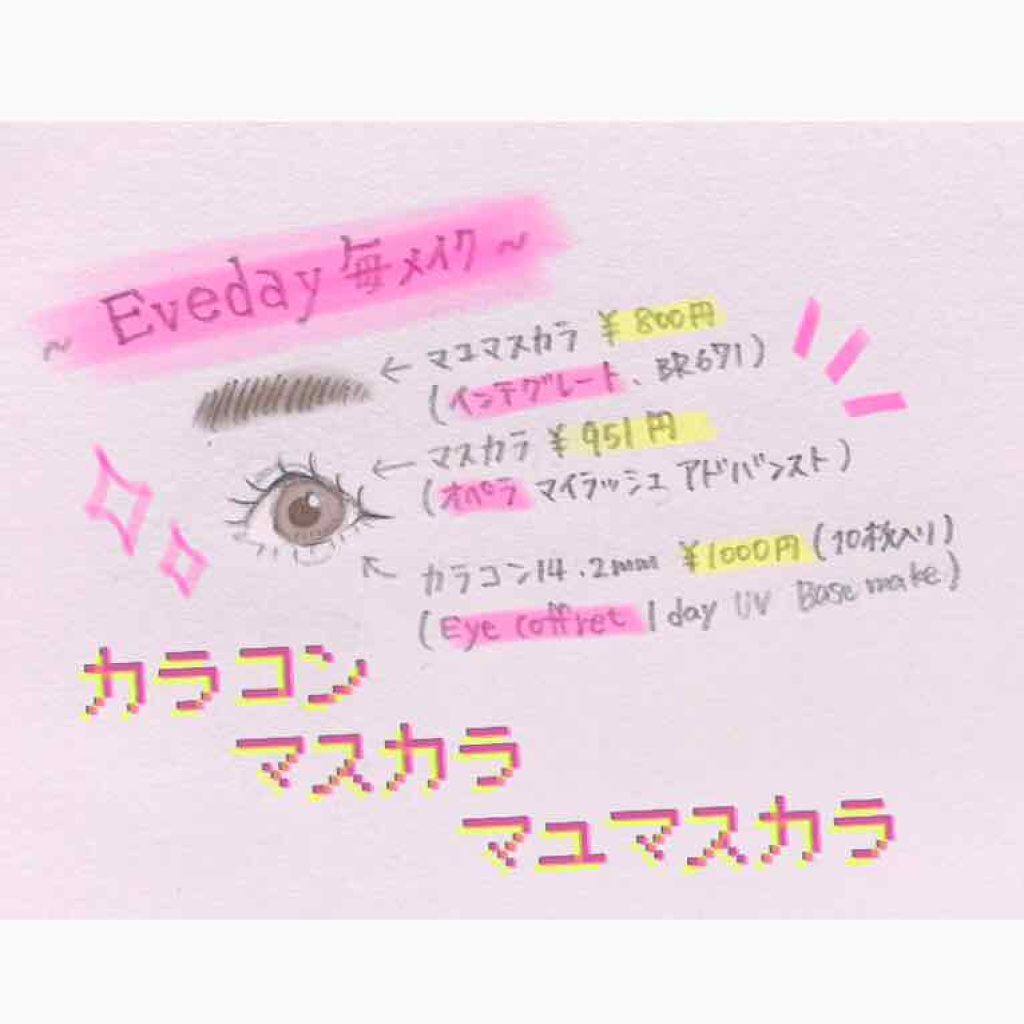 ～ Eveday 毎メイク ～
← マユマスカラ ¥800円
(インテグレート、BR671)
← マスカラ ¥951円
(オペラ マイラッシュ アドバンスト)
← カラコン14.2mm ¥1000円(10枚入り)
(Eye coffret 1day UV Base make)
カラコン
マスカラ
マユマスカラ